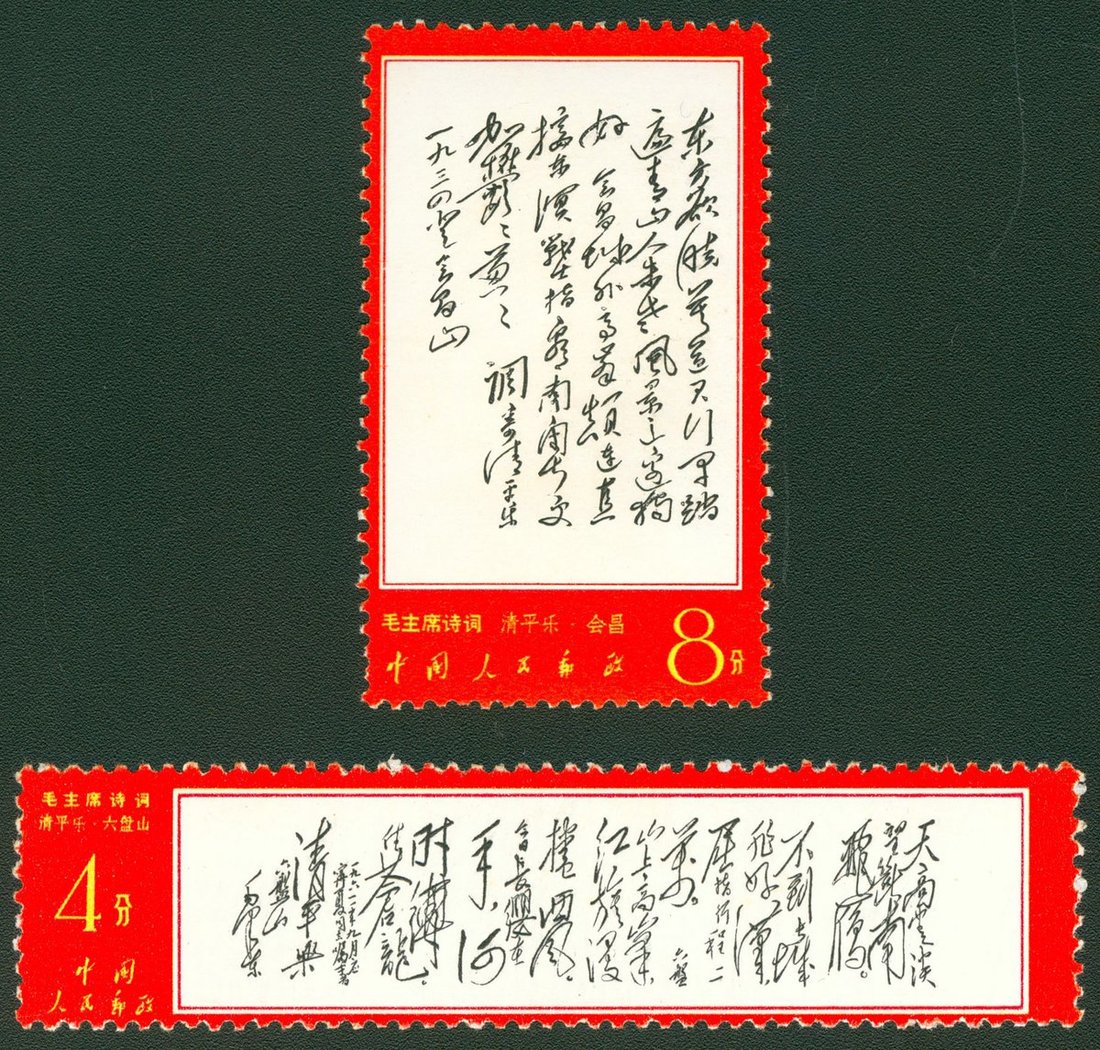 东方欲晓莫道君行早踏
遍青山人未老風景这边独
好 会昌城外高峯颠连直
接东溟戰士指看南粤更
加鬱々葱々 調寄清平乐
一九三四登会昌山
毛主席诗词 清平乐·会昌
中国人民邮政
8分
毛主席诗词
清平乐·六盘山
4分
中国
人民邮政
天高雲淡
望斷南
飛雁。
不到长城
非好漢
屈指行程二
萬。六盤
山上高峯
红旗漫
捲西风。
今日長缨在
手,何
时縛
住苍龍
一九六一年九月应
宁夏同志嘱書
清平樂
六盤山
毛泽东